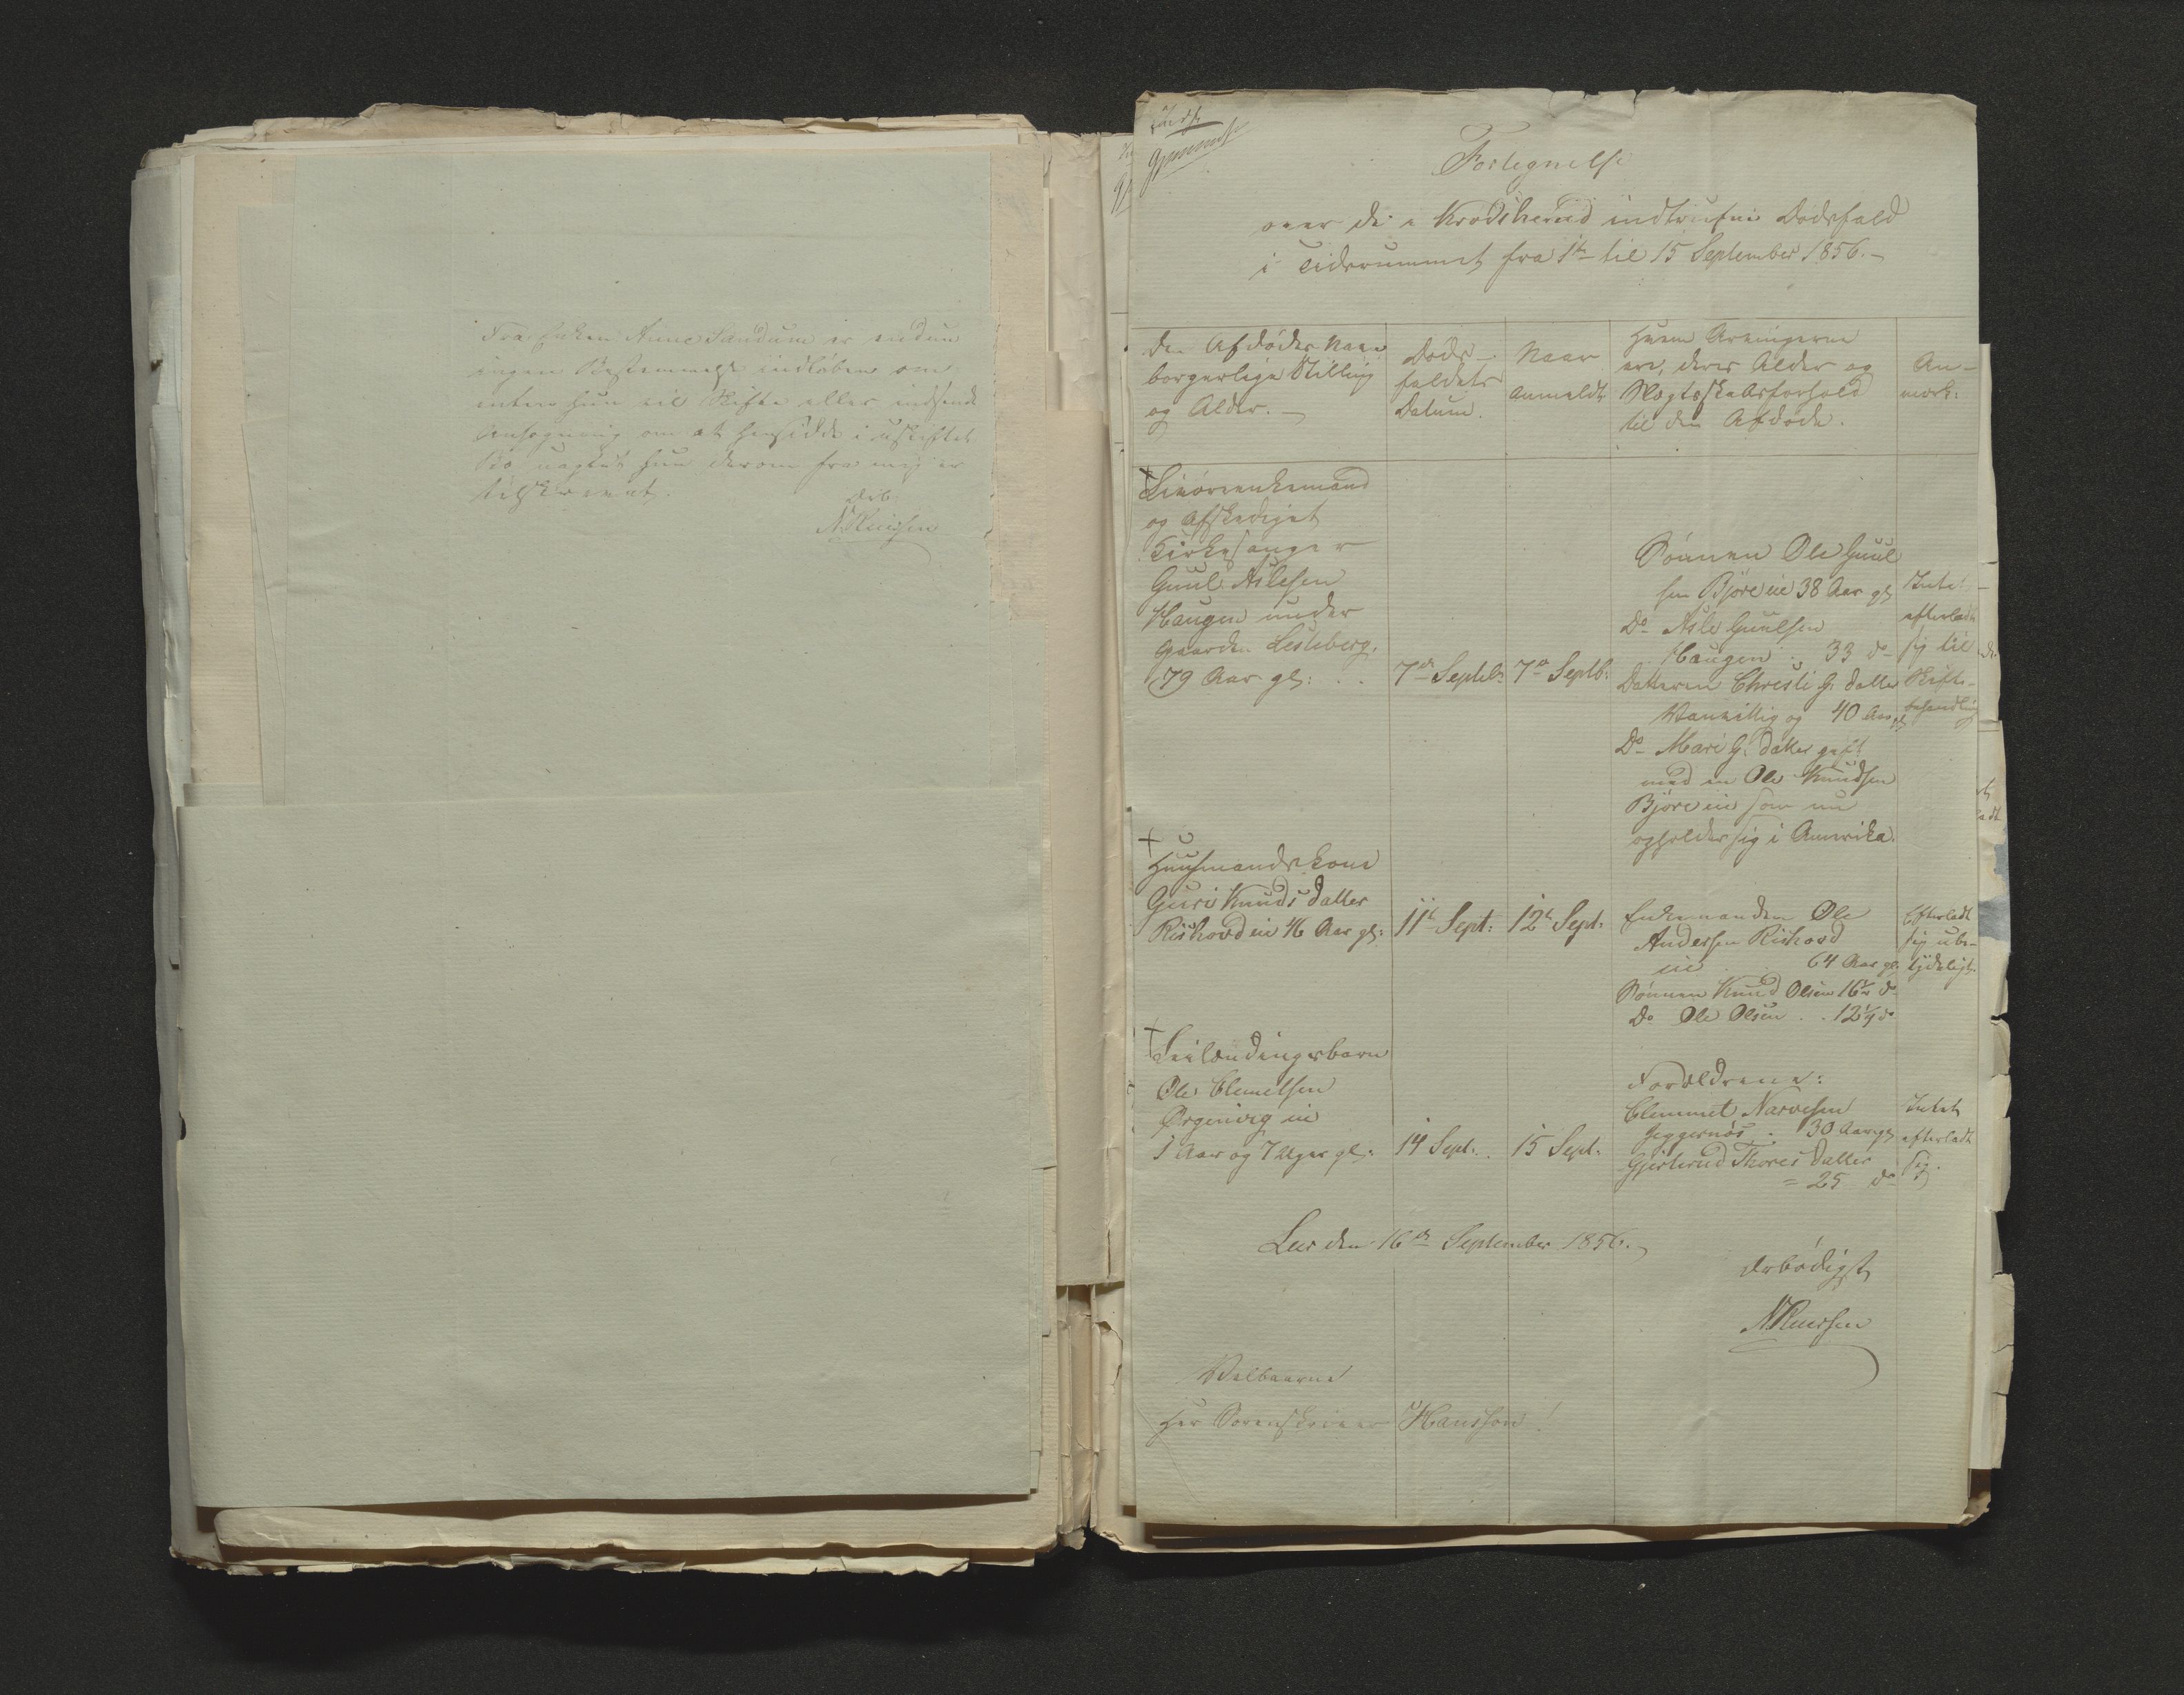 Fra Enken Anne Sandum er endnu
ingen Bestemmelse indløben om
enten hun vil Skifte eller indsende
Ansøgning om at hensidde i uskiftet
Bo uagtet hun derom fra mig er
tilskrevet.
D.S.
N Ruusen
Fortegnelse
over de i Krødsherred indtrufne Dødsfald
i Tidsrummet fra 1te til 15 September 1856.-
Den Afdødes Navn
borgerlige Stilling
og Alder. -
Døds-
faldets
Datum.
Naar
anmeldt
Hvem Arvingerne
ere, deres Alder og
Slægtskabsforhold
til den Afdøde.
An-
mærk:
og Afskediget
Kirkesanger
Guul Aslesen
Haugen under
Gaarden Lesteberg.
79 Aar gl: . .
7de Septbr:
7de Septb:
Sønnen Ole Guul
sen Bjøre eie 38 Aar gl
Do Asle Guulsen
Haugen . 33 do
Datteren Christi G. datter
Vanvittig og 40 Aar gl
Do Mari G. datter gift
med en Ole Knudsen
Bjøre eie som nu
opholder sig i Amerika.
Intet
efterladt
sig til
Skifte-
behandling
+
Huusmandskone
Guri Knudsdatter
Rishovd eie 46 Aar gl:
11te Sept:
12te Sept:
Enkemanden Ole
Andersen Rishovd
eie 64 Aar gl
Sønnen Knud Olsen 16½ do
Do Ole Olsen . . 12¼ do
Efterladt
sig ube-
tydeligt.
+ Inlændingsbarn
Ole Clemetsen
Ørgenvig eie
1 Aar og 7 Uger gl:
14 Sept. .
15 Sept.
Forældrene:
Clemmet Narvesen
Jeggernæs . 30 Aar gl
Gjertrud Thoresdatter
= 25 do
Intet
efterladt
sig.
Leer den 16de September 1856.
Ærbødigst
N Ruusen
Velbaarne
Herr Sorenskriver Hansson!